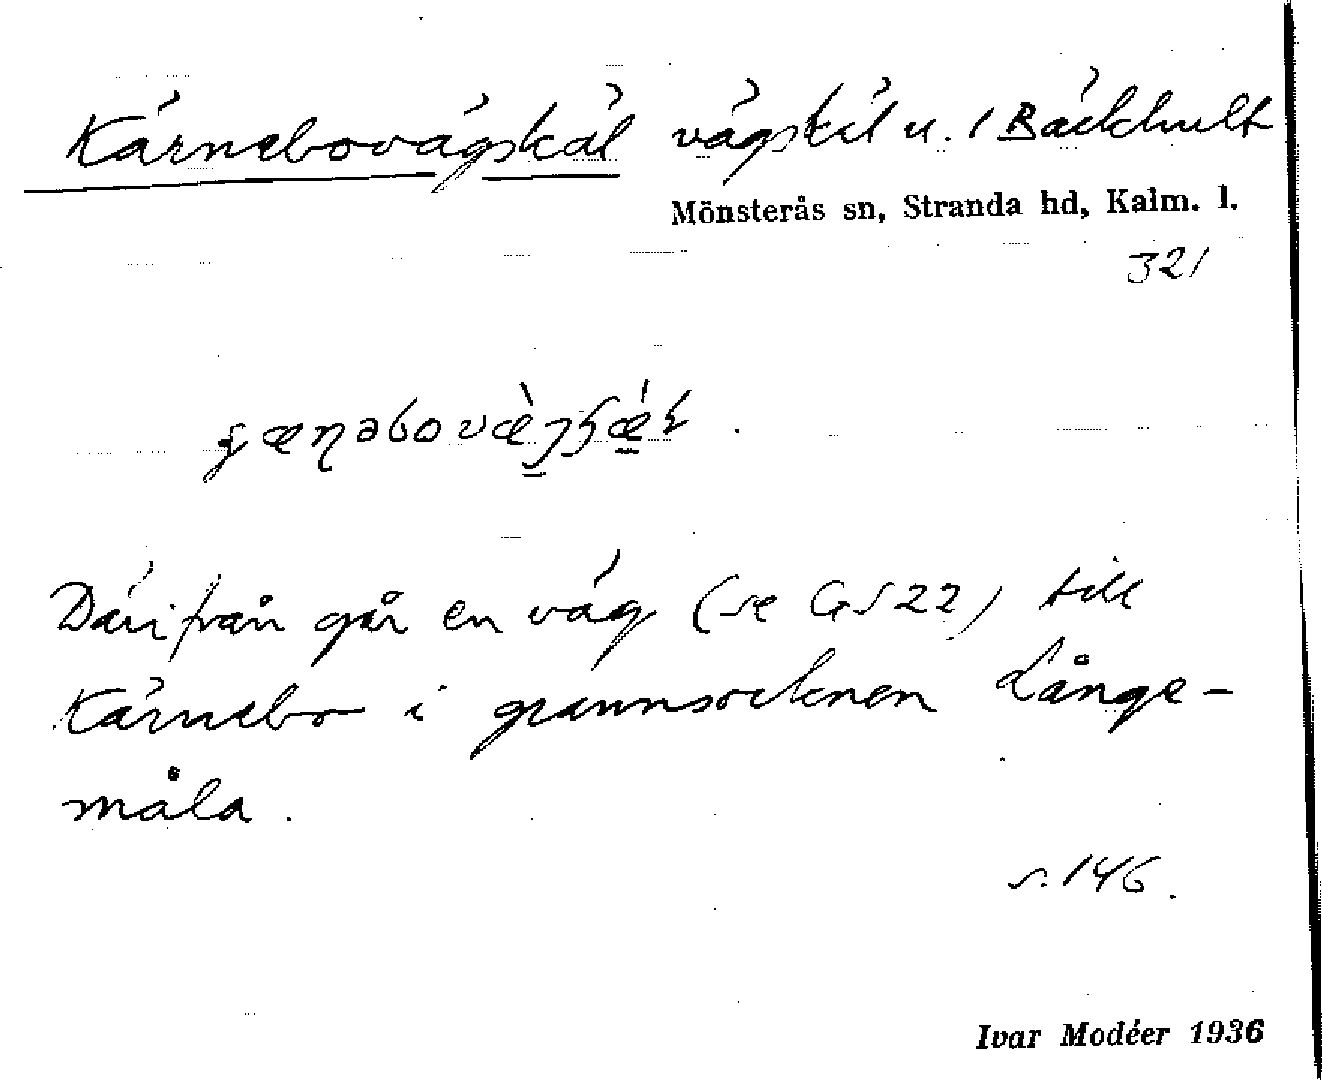 Kärnebovägskäl vägskäl u. 1 Bäckhult
Mönsterås sn, Stranda hd, Kalm. l.
321
Därifrån går en väg (se GS 22) till
Kärnebo i grannsocknen Långe-
måla.
s. 146.
Ivar Modéer 1936